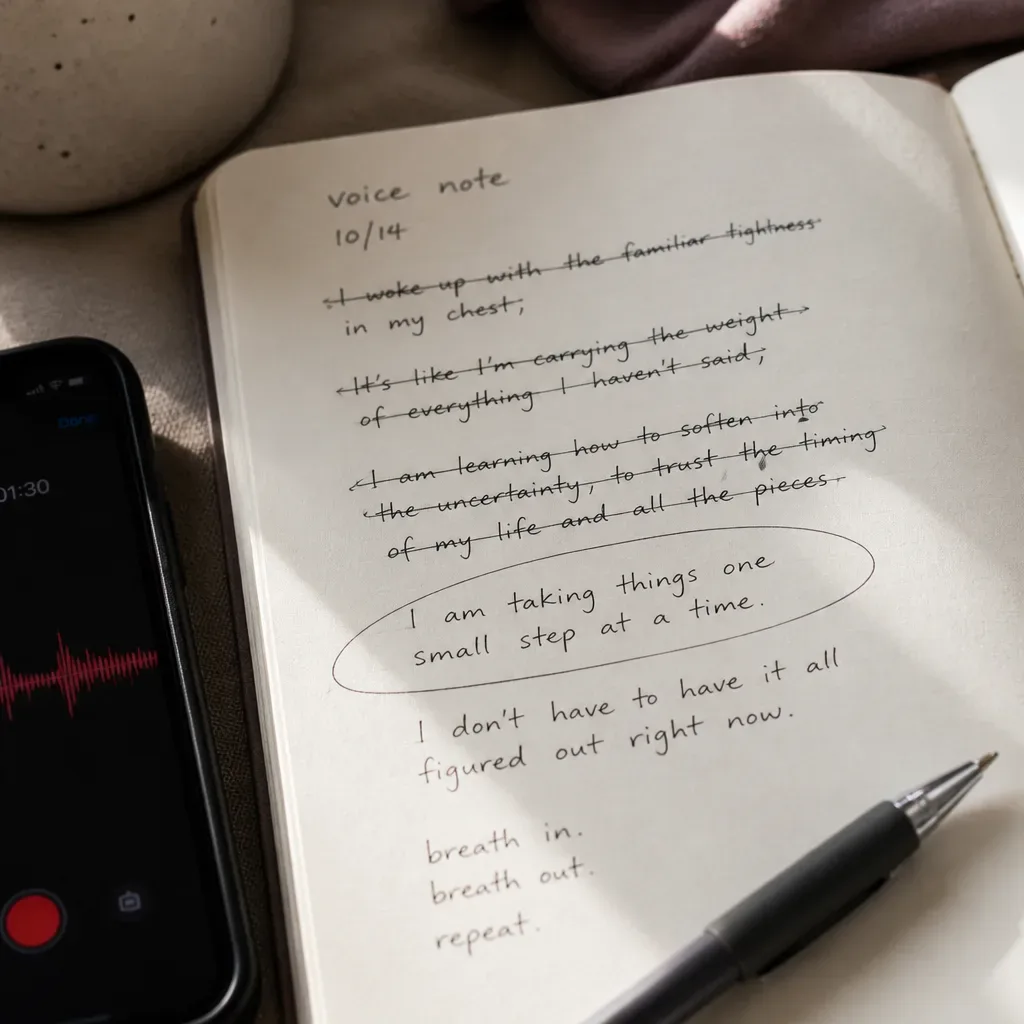 voice note
10/14
I woke up with the familiar tightness
in my chest;
It's like I'm carrying the weight
of everything I haven't said;
I am learning how to soften into
the uncertainty, to trust the timing
of my life and all the pieces.
I am taking things one
small step at a time.
I don't have to have it all
figured out right now.
breath in.
breath out.
repeat.
Done
01:30